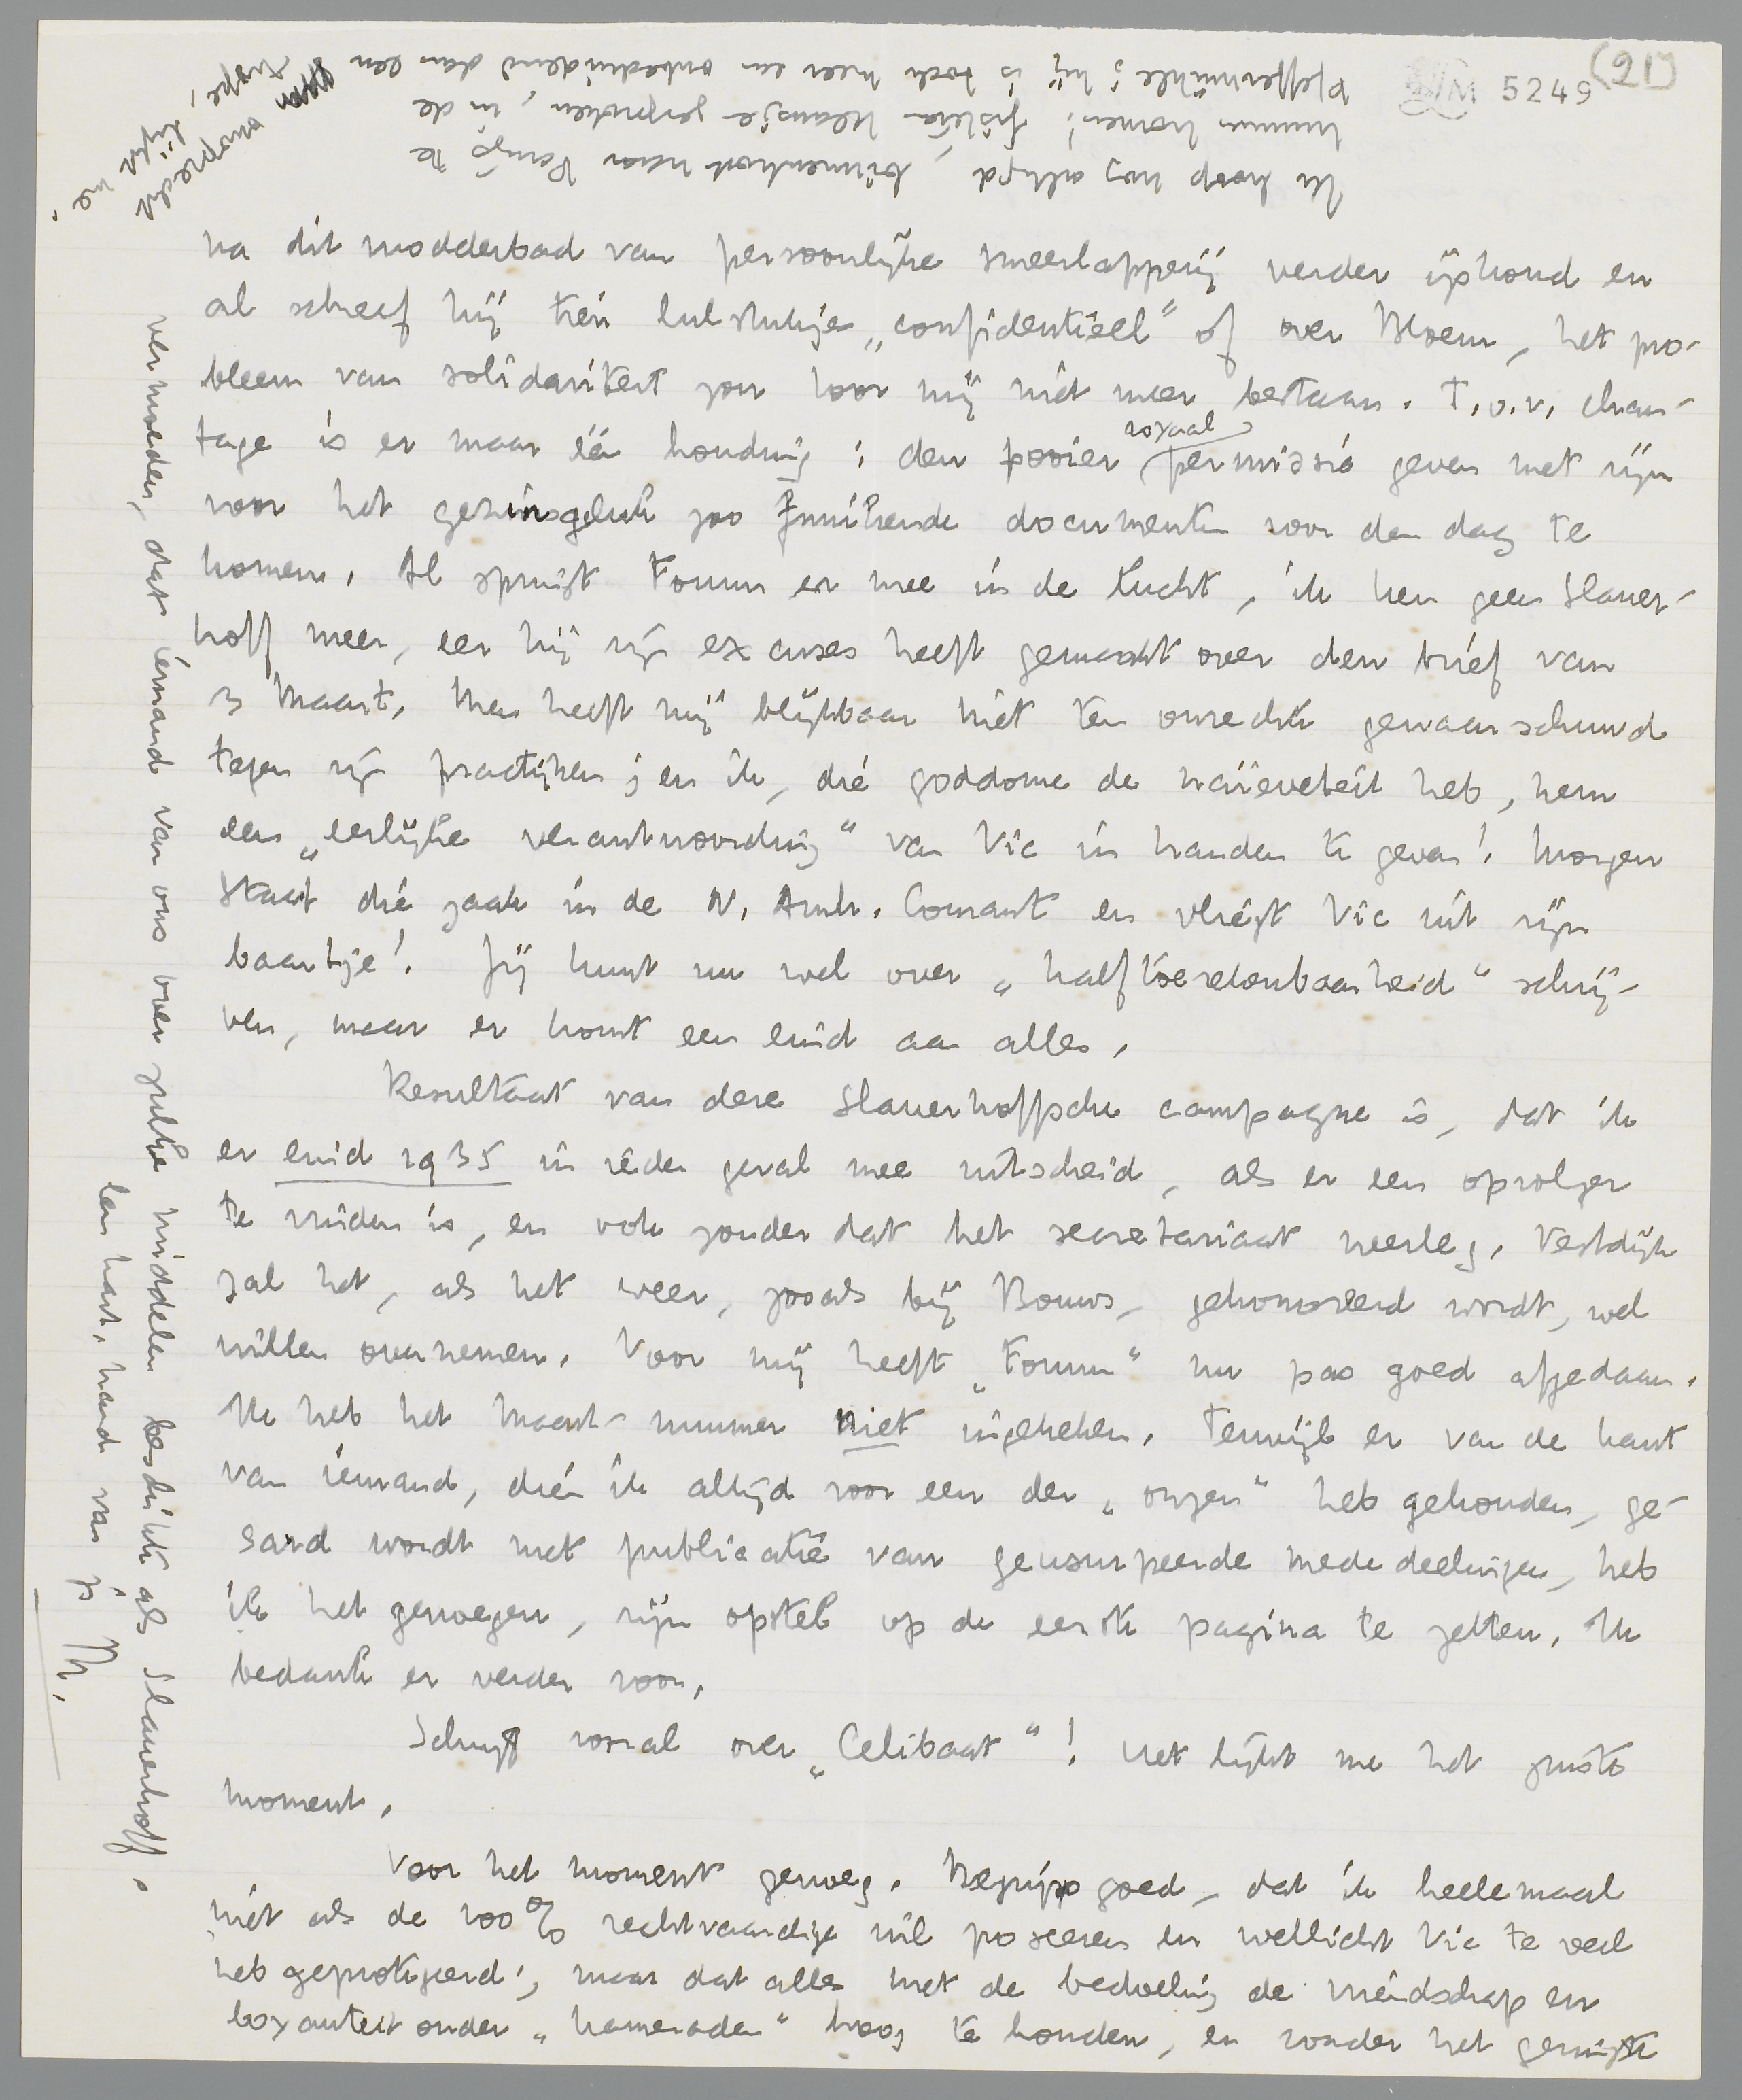 (21)
LM 5249
na dit modderbad van persoonlijke smeerlapperij verder ijskoud en
al schreef hij tien lulstukjes „confidentieel" of over Bloem, het pro-
bleem van solidariteit zou voor mij niet meer bestaan. T.o.v. chan-
tage is er maar één houding: den pooier royaal permissie geven met zijn
voor het gezinsgeluk zoo funikende documenten voor den dag te
komen. Al springt Forum er mee in de lucht, ik ken geen Slauer-
hoff meer, eer hij zijn excuses heeft gemaakt over den brief van
3 Maart. Men heeft mij blijkbaar niet ten onrechte gewaarschuwd
tegen zijn practijken; en ik, die goddome de naïeveteit heb, hem
een „eerlijke verantwoording" van Vic in handen te geven! Morgen
staat die zaak in de N. Arnh. Courant en vliegt Vic uit zijn
baantje! Jij kunt nu wel over „halftoerekenbaarheid" schrij-
ven, maar er komt een eind aan alles.
Resultaat van deze Slauerhoffsche campagne is, dat ik
er eind 1935 in ieder geval mee uitscheid, als er een opvolger
te vinden is, en ook zonder dat het secretariaat neerleg. Vestdijk
zal het, als het weer, zooals bij Bouws, gehonoreerd wordt, wel
willen overnemen. Voor mij heeft „Forum" nu pas goed afgedaan.
Ik heb het Maart-nummer niet ingekeken. Terwijl er van de kant
van iemand, dien ik altijd voor een der „onzen" heb gehouden, ge-
sard wordt met publicatie van geusurpeerde mededeelingen, heb
ik het genoegen, zijn opstel op de eerste pagina te zetten. Ik
bedank er verder voor.
Schrijf vooral over „Celibaat"! Het lijkt me het juiste
moment.
Voor het moment genoeg. Begrijp goed, dat ik heelemaal
niet als de 100% rechtvaardige wil poseeren en wellicht Vic te veel
heb geprotegeerd; maar dat alles met de bedoeling de vriendschap en
loyauteit onder „kameraden" hoog te houden, en zonder het geringste
vermoeden, dat iemand van ons over zulke middelen beschikte als Slauerhoff.
Een hart. hand van je M.
Ik hoop nog altijd, binnenkort naar Parijs te
kunnen komen! Friteia Klaasje gesproken, in de
Pfeffermühle; hij is toch meer een onbeduidend dan een
onoprecht type, lijkt me.